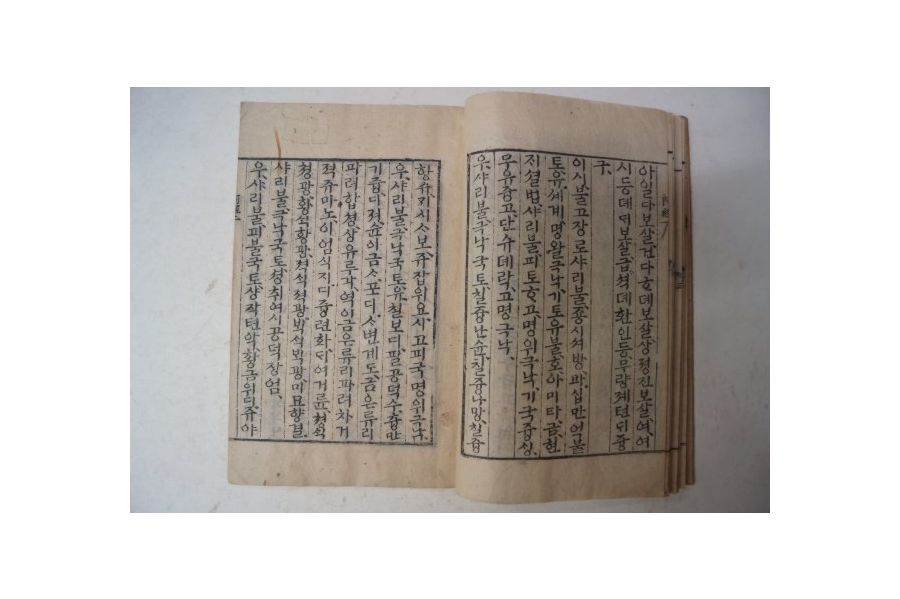 아일다보살건다ᄒᆞ뎨보살샹졍진보살여여
시등뎨대보살급셕뎨환인등무량졔텬대즁
구
이시불고쟝로샤리불죵시셔방파십만억불
토유셰계명왈극낙기토유불호아미타금현
ᄌᆡ셜법샤리불피토하고명위극낙기국즁ᄉᆡᆼ
무유즁고단슈뎨락고명극낙
우샤리불극낙국토칠즁난슌칠즁나망칠즁
항슈ᄀᆡ시ᄉᆞ보쥬잡위요시고피국명위극낙
우샤리불극낙국토유칠보디팔공덕슈츙만
기즁디져슌이금ᄉᆞ포디ᄉᆞ변계도금은류리
파려합셩샹유루각역이금은류리파려챠거
젹쥬마노이엄식지디즁련화대여거륜쳥ᄉᆡᆨ
쳥광황ᄉᆡᆨ황광젹ᄉᆡᆨ젹광ᄇᆡᆨᄉᆡᆨᄇᆡᆨ광미묘향결
샤리불극낙국토셩취여시공덕장엄
우샤리불피불국토샹작텬악황금위디쥬야